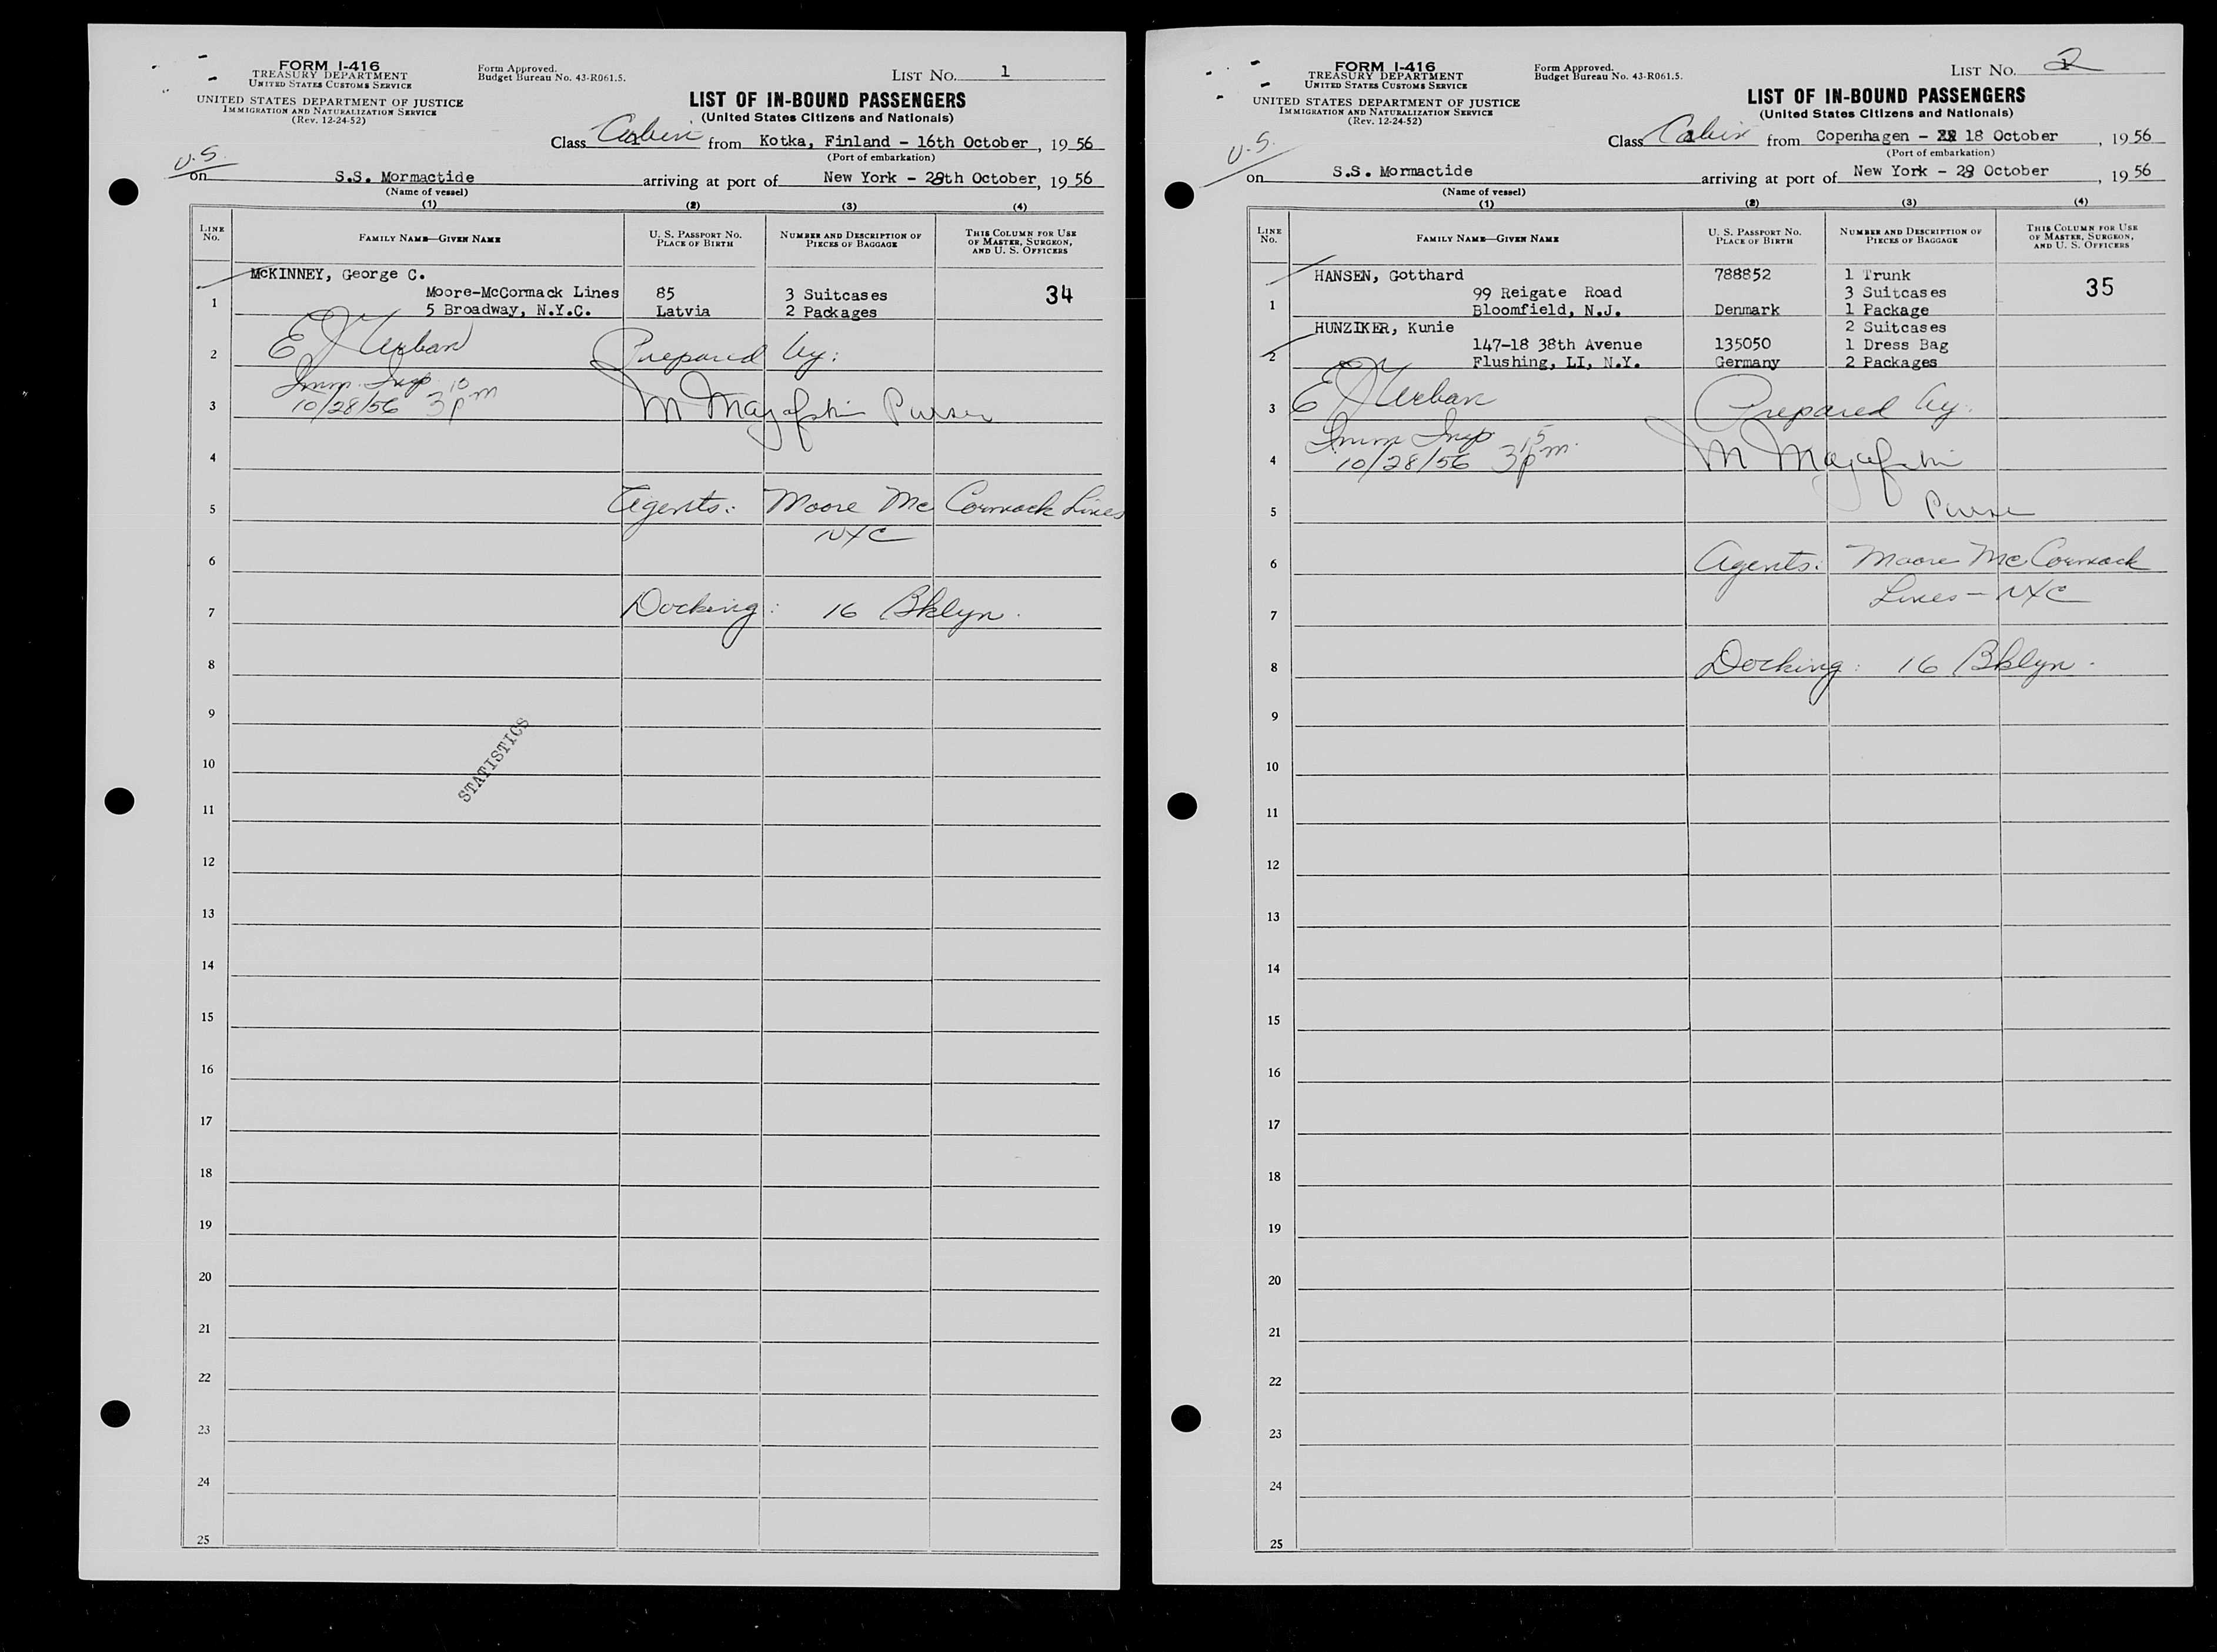 FORM I-416
TREASURY DEPARTMENT
UNITED STATES CUSTOMS SERVICE
UNITED STATES DEPARTMENT OF JUSTICE
IMMIGRATION AND NATURALIZATION SERVICE
(Rev. 12-24-52)
Form Approved.
Budget Bureau No. 43-R061.5.
LIST NO. 1
LIST OF IN-BOUND PASSENGERS
(United States Citizens and Nationals)
Class Cabin from Kotka, Finland - 16th October, 19 56
(Port of embarkation)
U.S.
on S.S. Mormactide arriving at port of New York - 28th October, 19 56
(Name of vessel)
(1) (2) (3) (4)
LINE NO. FAMILY NAME—GIVEN NAME U. S. PASSPORT NO. PLACE OF BIRTH NUMBER AND DESCRIPTION OF PIECES OF BAGGAGE THIS COLUMN FOR USE OF MASTER, SURGEON, AND U. S. OFFICERS
McKINNEY, George C.
Moore-McCormack Lines 85 3 Suitcases 34
1
5 Broadway, N.Y.C. Latvia 2 Packages
2 E J Urban Prepared by:
Imm. Insp. 10
3 10/28/56 3 pm M Purser
4
5 Agents: Moore McCormack Lines
NYC
6
7 Docking: 16 Bklyn.
8
9
STATISTICS
10
11
12
13
14
15
16
17
18
19
20
21
22
23
24
25
FORM I-416
TREASURY DEPARTMENT
UNITED STATES CUSTOMS SERVICE
UNITED STATES DEPARTMENT OF JUSTICE
IMMIGRATION AND NATURALIZATION SERVICE
(Rev. 12-24-52)
Form Approved.
Budget Bureau No. 43-R061.5.
LIST NO. 2
LIST OF IN-BOUND PASSENGERS
(United States Citizens and Nationals)
Class Cabin from Copenhagen - 18 October, 19 56
(Port of embarkation)
U.S.
on S.S. Mormactide arriving at port of New York - 28 October, 19 56
(Name of vessel)
(1) (2) (3) (4)
LINE NO. FAMILY NAME—GIVEN NAME U. S. PASSPORT NO. PLACE OF BIRTH NUMBER AND DESCRIPTION OF PIECES OF BAGGAGE THIS COLUMN FOR USE OF MASTER, SURGEON, AND U. S. OFFICERS
HANSEN, Gotthard 788852 1 Trunk
99 Reigate Road 3 Suitcases 35
1 Bloomfield, N.J. Denmark 1 Package
HUNZIKER, Kunie 2 Suitcases
147-18 38th Avenue 135050 1 Dress Bag
2 Flushing, LI, N.Y. Germany 2 Packages
3 E J Urban Prepared by:
Imm Insp 15
4 10/28/56 3 pm. M
5 Purser
6 Agents: Moore McCormack
Lines - NYC
7
8 Docking: 16 Bklyn.
9
10
11
12
13
14
15
16
17
18
19
20
21
22
23
24
25